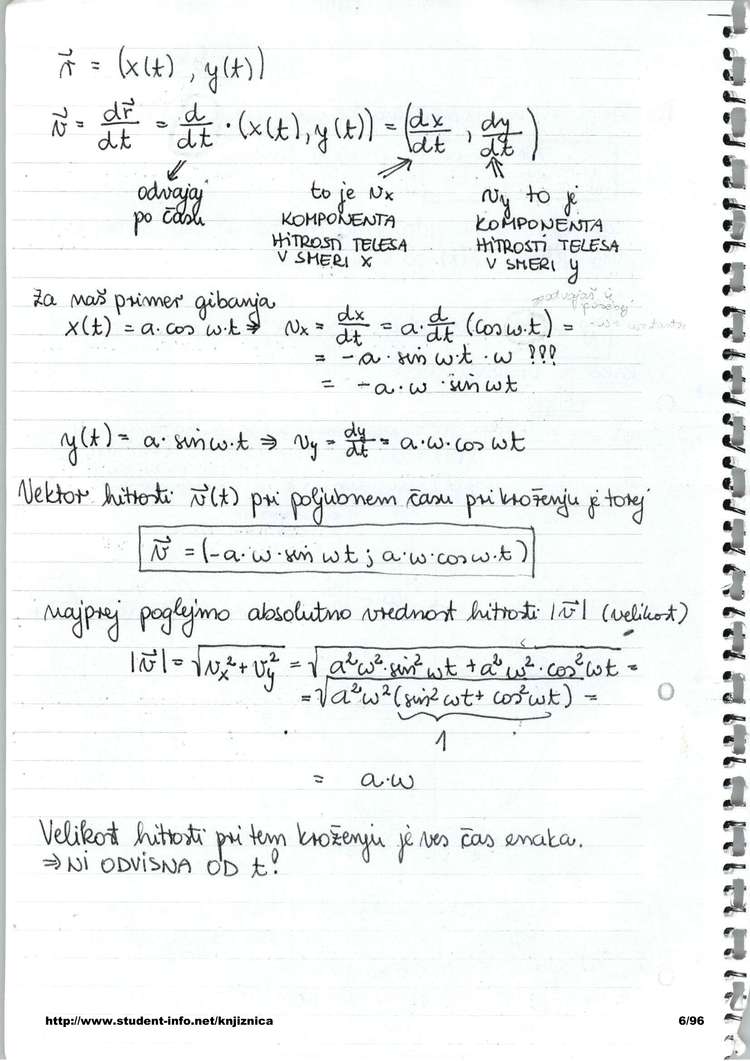 r⃗ = (x(t), y(t))
v⃗ = dr⃗/dt = d/dt · (x(t), y(t)) = (dx/dt, dy/dt)
odvajaj po času
to je vx KOMPONENTA HITROSTI TELESA V SMERI X
vy to je KOMPONENTA HITROSTI TELESA V SMERI y
Za naš primer gibanja
x(t) = a·cos ω·t ⇒ vx = dx/dt = a·d/dt (cos ω·t) =
= -a · sin ω·t · ω ???
= -a·ω · sin ωt
y(t) = a· sin ω·t ⇒ vy = dy/dt = a·ω·cos ωt
Vektor hitrosti v⃗(t) pri poljubnem času pri kroženju je torej
v⃗ = (-a·ω·sin ωt ; a·ω·cos ω·t)
najprej poglejmo absolutno vrednost hitrosti |v⃗| (velikost)
|v⃗| = √(vx² + vy²) = √(a²ω²·sin² ωt + a²ω²·cos² ωt) =
= √(a²ω²(sin² ωt + cos² ωt)) =
1
= a·ω
Velikost hitrosti pri tem kroženju je ves čas enaka.
⇒ NI ODVISNA OD t!
http://www.student-info.net/knjiznica
6/96